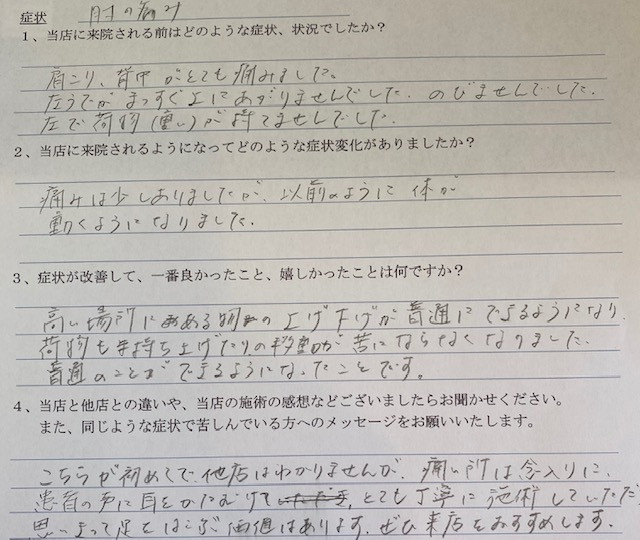 症状 肘の痛み
1、当店に来院される前はどのような症状、状況でしたか？
肩こり、背中がとても痛みました。
左うでがまっすぐ上にあがりませんでした。のびませんでした。
左で荷物(重い)が持てませんでした。
2、当店に来院されるようになってどのような症状変化がありましたか？
痛みは少しありましたが、以前のように体が
動くようになりました。
3、症状が改善して、一番良かったこと、嬉しかったことは何ですか？
高い場所にある物の上げ下げが普通にできるようになり
荷物も持ち上げたりの移動が苦にならなくなりました。
普通のことができるようになったことです。
4、当店と他店との違いや、当店の施術の感想などございましたらお聞かせください。
また、同じような症状で苦しんでいる方へのメッセージをお願いいたします。
こちらが初めてで他店はわかりませんが、痛い所は念入りに、
患者の声に耳をかたむけて、とても丁寧に施術していただ
思いきって足をはこぶ価値はあります。ぜひ来店をおすすめします。